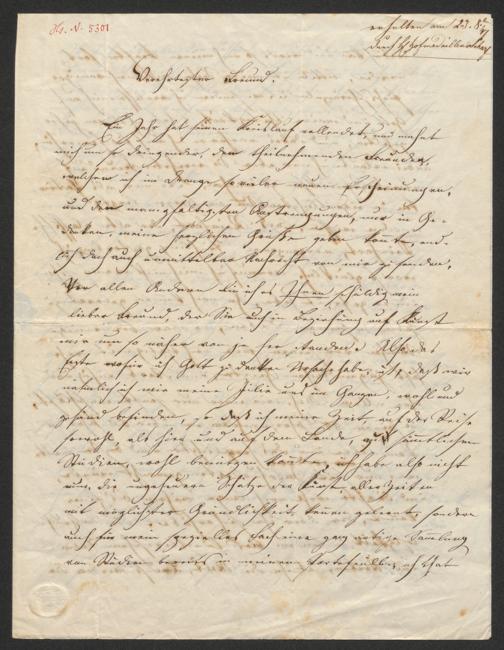 Hs. N. 5301
erhalten am 23. 8
durch H. Hofmedailleur
Verehrtester Freund.
Ein Jahr hat seinen Kreislauf vollendet, und mahnt
mich um so dringender, den theilnehmenden Freunden,
welchen ich im Drange so vieler neuen Erscheinungen,
und den mannigfaltigsten Anstrengungen, nur in Ge-
danken, meine herzlichen Grüße geben konnte, end-
lich doch auch unmittelbar Nachricht von mir zu senden.
Vor allen Anderen bin ich es Ihnen schuldig mein
lieber Freund, der Sie auch in Beziehung auf Kunst
mir um so näher von je her standen. Also das
Erste wofür ich Gott zu danken Ursache habe, ist, daß wir
nämlich ich mir meine Julie uns im Ganzen, wohl und
gesund befinden, so daß ich meine Zeit auf der Reise
sowohl, als hier und auf dem Lande, zu sämtlichen
Studien, wohl benützen konnte, ich habe also nicht
nur die ungeheuren Schätze der Kunst aller Zeiten
mit möglichster Gründlichkeit kennen gelernt, sondern
auch für mein spezielles Fach eine ganz artige Samlung
von Studien bereits in meinem Portefeuille, ich that